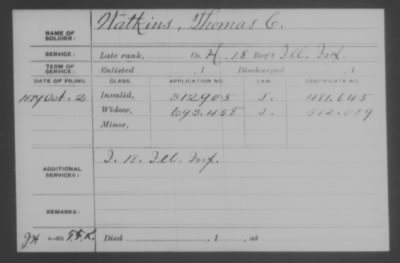 NAME OF SOLDIER: Watkins, Thomas C.
SERVICE: Late rank, Co. H, 18 Reg't Ill. Inf.
TERM OF SERVICE: Enlisted , 1 Discharged , 1
DATE OF FILING. CLASS. APPLICATION NO. LAW. CERTIFICATE NO.
1879 Oct. 2 Invalid, 312905 J. 481.645
Widow, 693.458 J. 512.079
Minor,
ADDITIONAL SERVICES: I. 18. Ill. Inf.
REMARKS:
Died , 1 , at